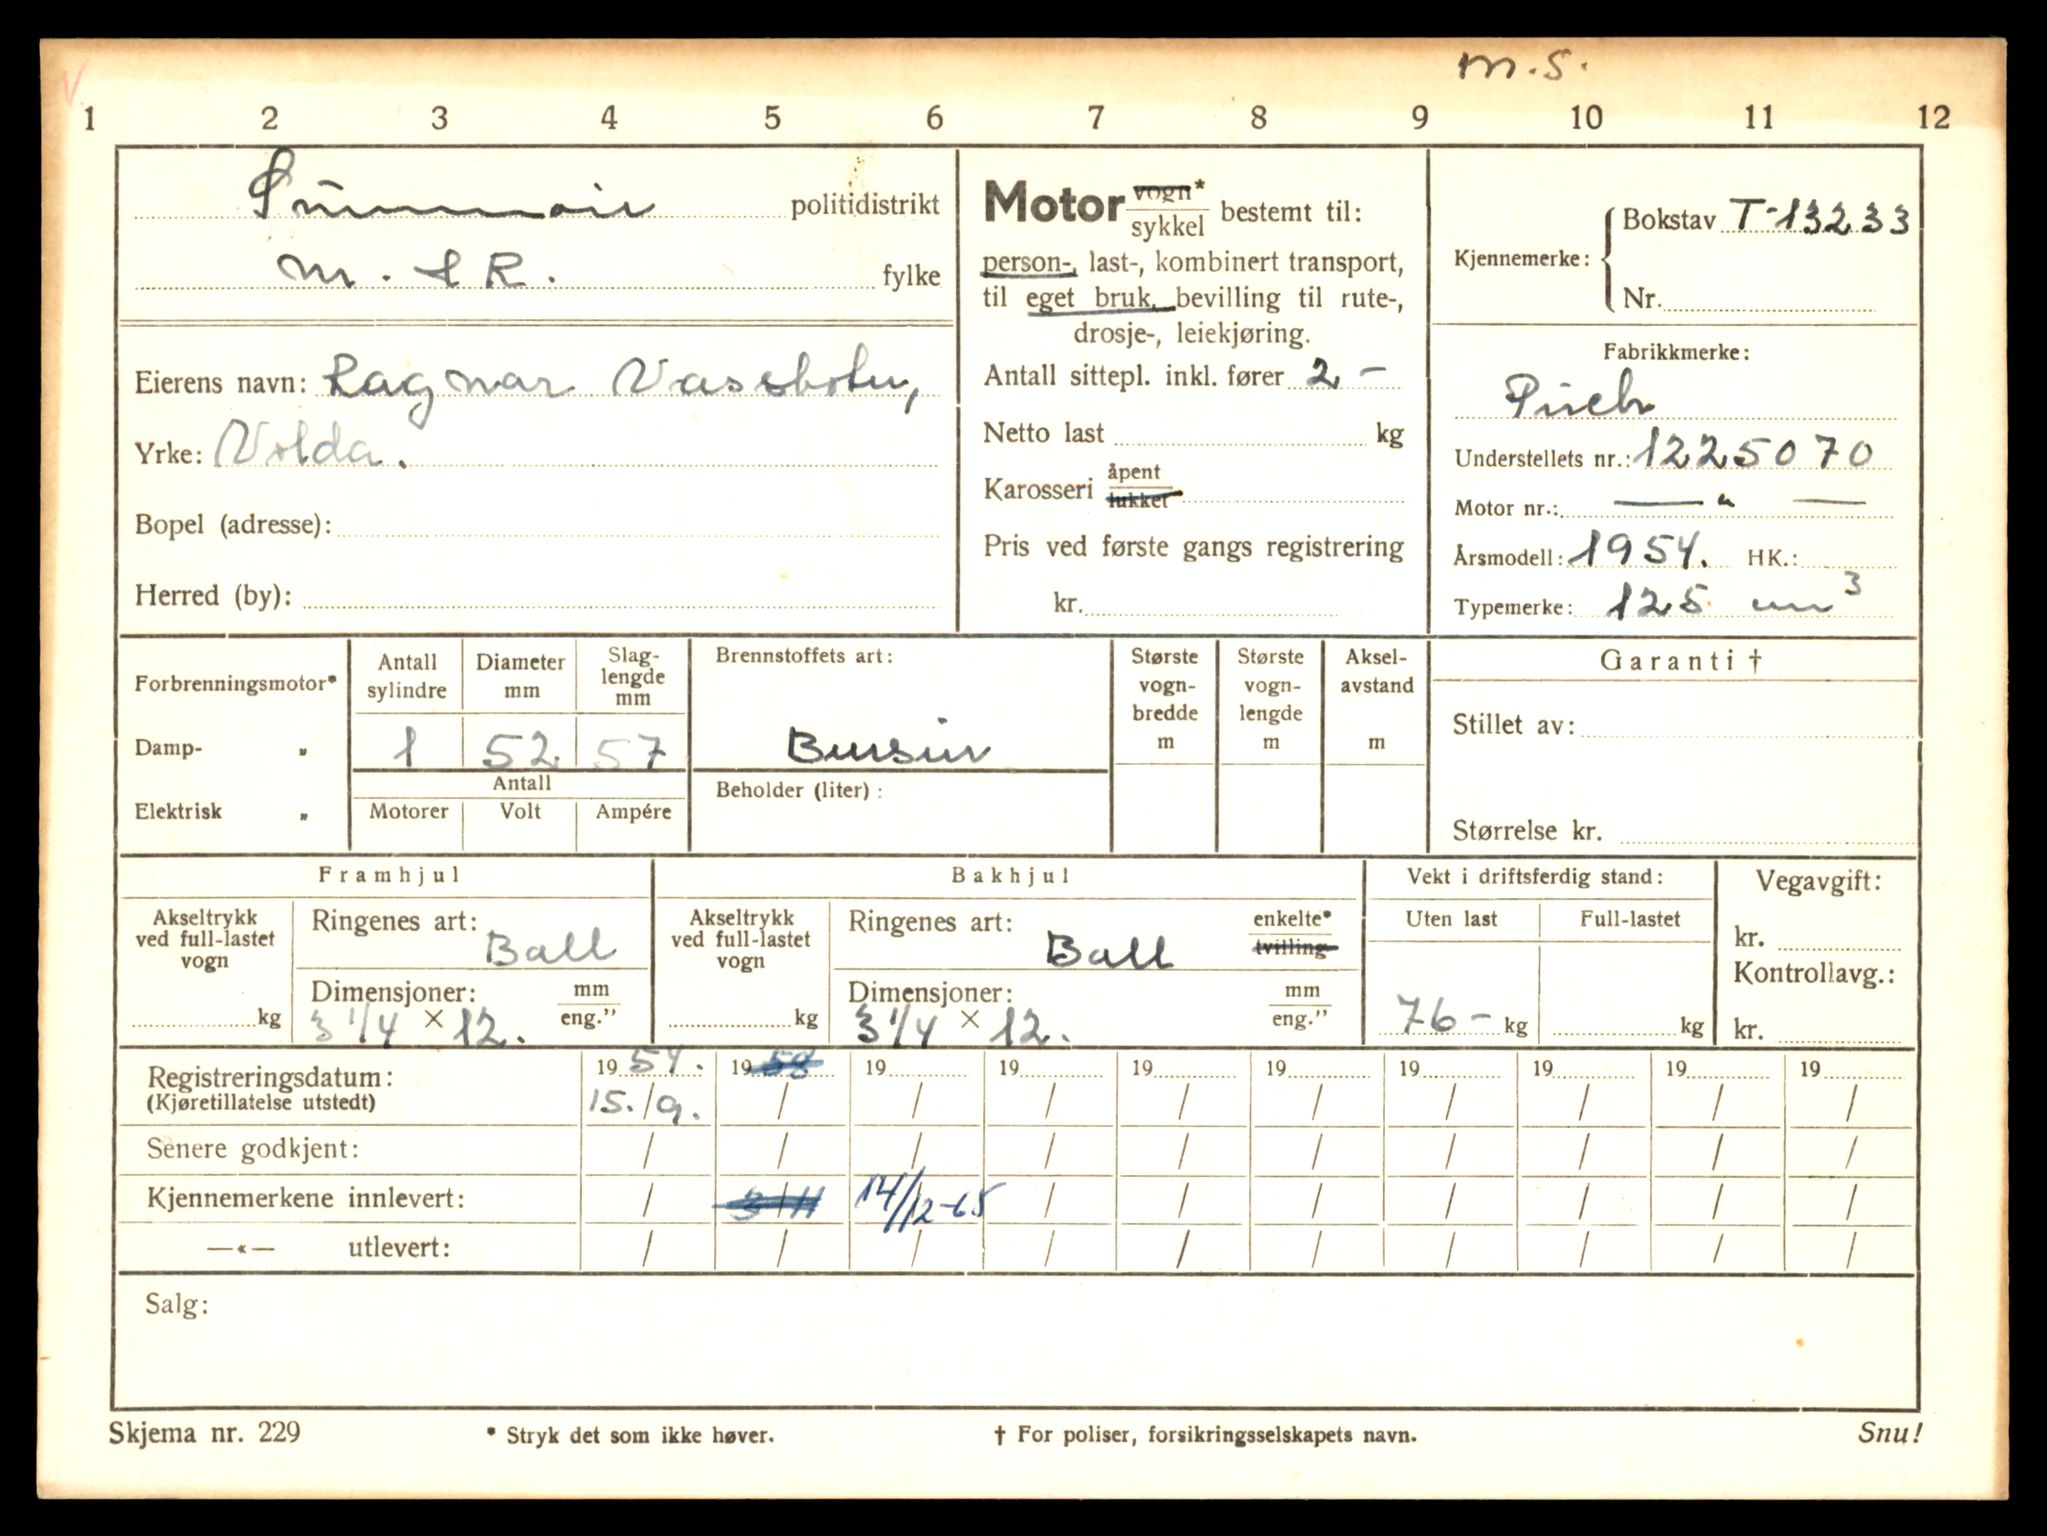 m.s.
1 2 3 4 5 6 7 8 9 10 11 12
Sunnmøre politidistrikt
M. & R. fylke
Eierens navn: Ragnar Vassbotn,
Yrke: Volda.
Bopel (adresse):
Herred (by):
Motor vogn* / sykkel bestemt til:
person-, last-, kombinert transport,
til eget bruk, bevilling til rute-,
drosje-, leiekjøring.
Antall sittepl. inkl. fører 2 -
Netto last kg
Karosseri åpent / lukket
Pris ved første gangs registrering
kr.
Kjennemerke: Bokstav T-13233
Nr.
Fabrikkmerke:
Puch
Understellets nr.: 1225070
Motor nr.: — " —
Årsmodell: 1954. HK.:
Typemerke: 125 cm³
Forbrenningsmotor*
Damp- "
Elektrisk "
Antall sylindre
Diameter mm
Slag-
lengde
mm
1 52 57
Antall
Motorer Volt Ampére
Brennstoffets art:
Bensin
Beholder (liter):
Største
vogn-
bredde
m
Største
vogn-
lengde
m
Aksel-
avstand
m
Garanti †
Stillet av:
Størrelse kr.
Framhjul
Akseltrykk
ved full-lastet
vogn
kg
Ringenes art:
Ball
Dimensjoner: mm / eng."
3 1/4 × 12.
Bakhjul
Akseltrykk
ved full-lastet
vogn
kg
Ringenes art: enkelte* / tvilling
Ball
Dimensjoner: mm / eng."
3 1/4 × 12.
Vekt i driftsferdig stand:
Uten last Full-lastet
76 - kg kg
Vegavgift:
kr.
Kontrollavg.:
kr.
Registreringsdatum: 19 54. 19 58 19 19 19 19 19 19 19 19
(Kjøretillatelse utstedt) 15./9. / / / / / / / / /
Senere godkjent: / / / / / / / / / /
Kjennemerkene innlevert: / 3/11 14/12-65 / / / / / / /
—«— utlevert: / / / / / / / / / /
Salg:
Skjema nr. 229 * Stryk det som ikke høver. † For poliser, forsikringsselskapets navn. Snu!